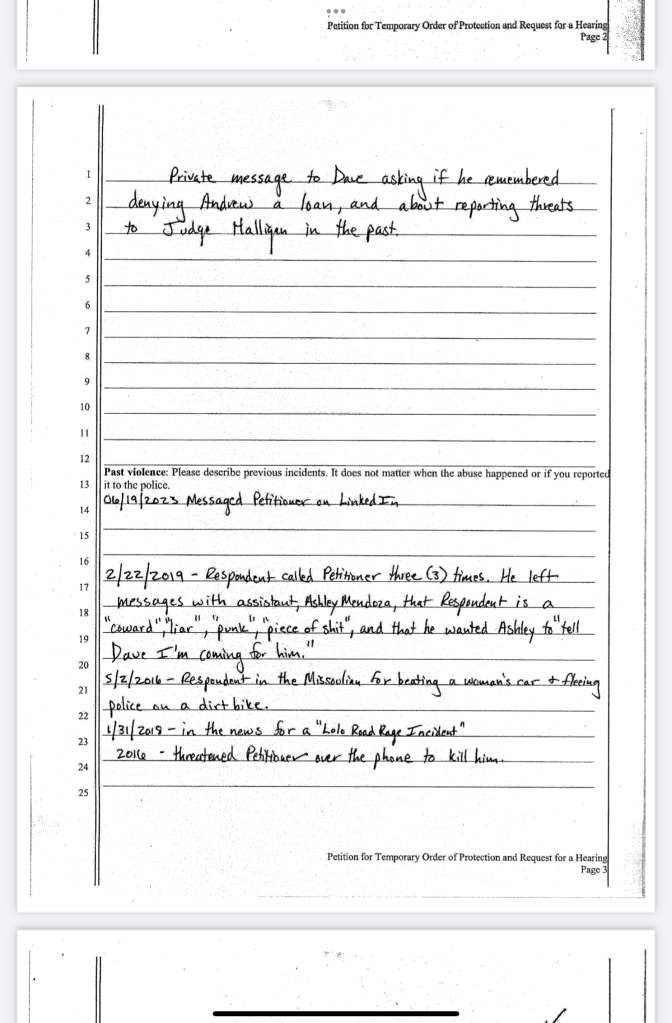 Petition for Temporary Order of Protection and Request for a Hearing
Page 2
1 Private message to Dave asking if he remembered
2 denying Andrew a loan, and about reporting threats
3 to Judge Halligan in the past.
4
5
6
7
8
9
10
11
12
Past violence: Please describe previous incidents. It does not matter when the abuse happened or if you reported
13 it to the police.
14 06/19/2023 Messaged Petitioner on LinkedIn
15
16
17 2/22/2019 - Respondent called Petitioner three (3) times. He left
18 messages with assistant, Ashley Mendoza, that Respondent is a
19 "coward", "liar", "punk", "piece of shit", and that he wanted Ashley to "tell
20 Dave I'm coming for him."
21 5/2/2016 - Respondent in the Missoulian for beating a woman's car + fleeing
22 police on a dirt bike.
23 1/31/2018 - in the news for a "Lolo Road Rage Incident"
24 2016 - threatened Petitioner over the phone to kill him.
25
Petition for Temporary Order of Protection and Request for a Hearing
Page 3